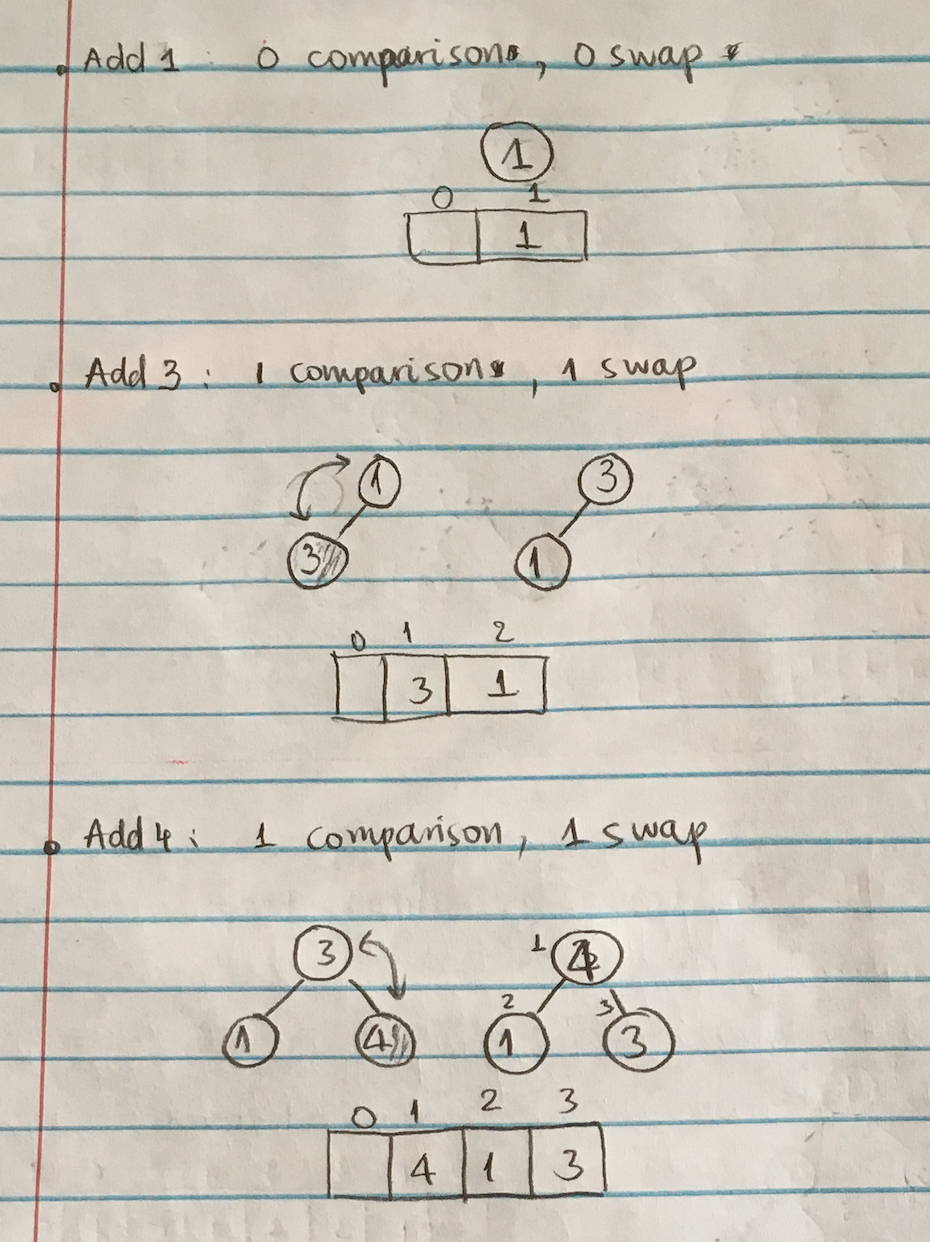 Add 1 : 0 comparison, 0 swap
1
0 1
1
Add 3 : 1 comparison, 1 swap
1 3
3 1
0 1 2
3 1
Add 4 : 1 comparison, 1 swap
3 1 4
2 3
1 4 1 3
0 1 2 3
4 1 3